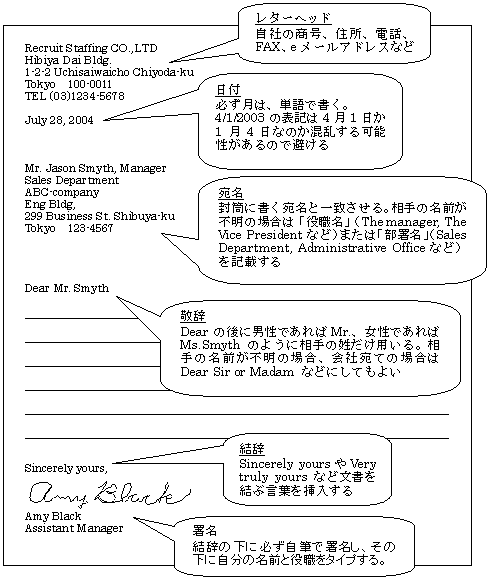 レターヘッド
自社の商号、住所、電話、
FAX、eメールアドレスなど
Recruit Staffing CO.,LTD
Hibiya Dai Bldg.
1-2-2 Uchisaiwaicho Chiyoda-ku
Tokyo 100-0011
TEL (03)1234-5678
July 28, 2004
日付
必ず月は、単語で書く。
4/1/2003の表記は4月1日か
1月4日なのか混乱する可能
性があるので避ける
Mr. Jason Smyth, Manager
Sales Department
ABC-company
Eng Bldg,
299 Business St. Shibuya-ku
Tokyo 123-4567
宛名
封筒に書く宛名と一致させる。相手の名前が
不明の場合は「役職名」（The manager, The
Vice Presidentなど）または「部署名」（Sales
Department, Administrative Officeなど）
を記載する
Dear Mr. Smyth
敬辞
Dearの後に男性であればMr.、女性であれば
Ms.Smythのように相手の姓だけ用いる。相
手の名前が不明の場合、会社宛ての場合は
Dear Sir or Madam などにしてもよい
結辞
Sincerely yoursやVery
truly yours など文書を
結ぶ言葉を挿入する
Sincerely yours,
Amy Black
Amy Black
Assistant Manager
署名
結辞の下に必ず自筆で署名し、その
下に自分の名前と役職をタイプする。